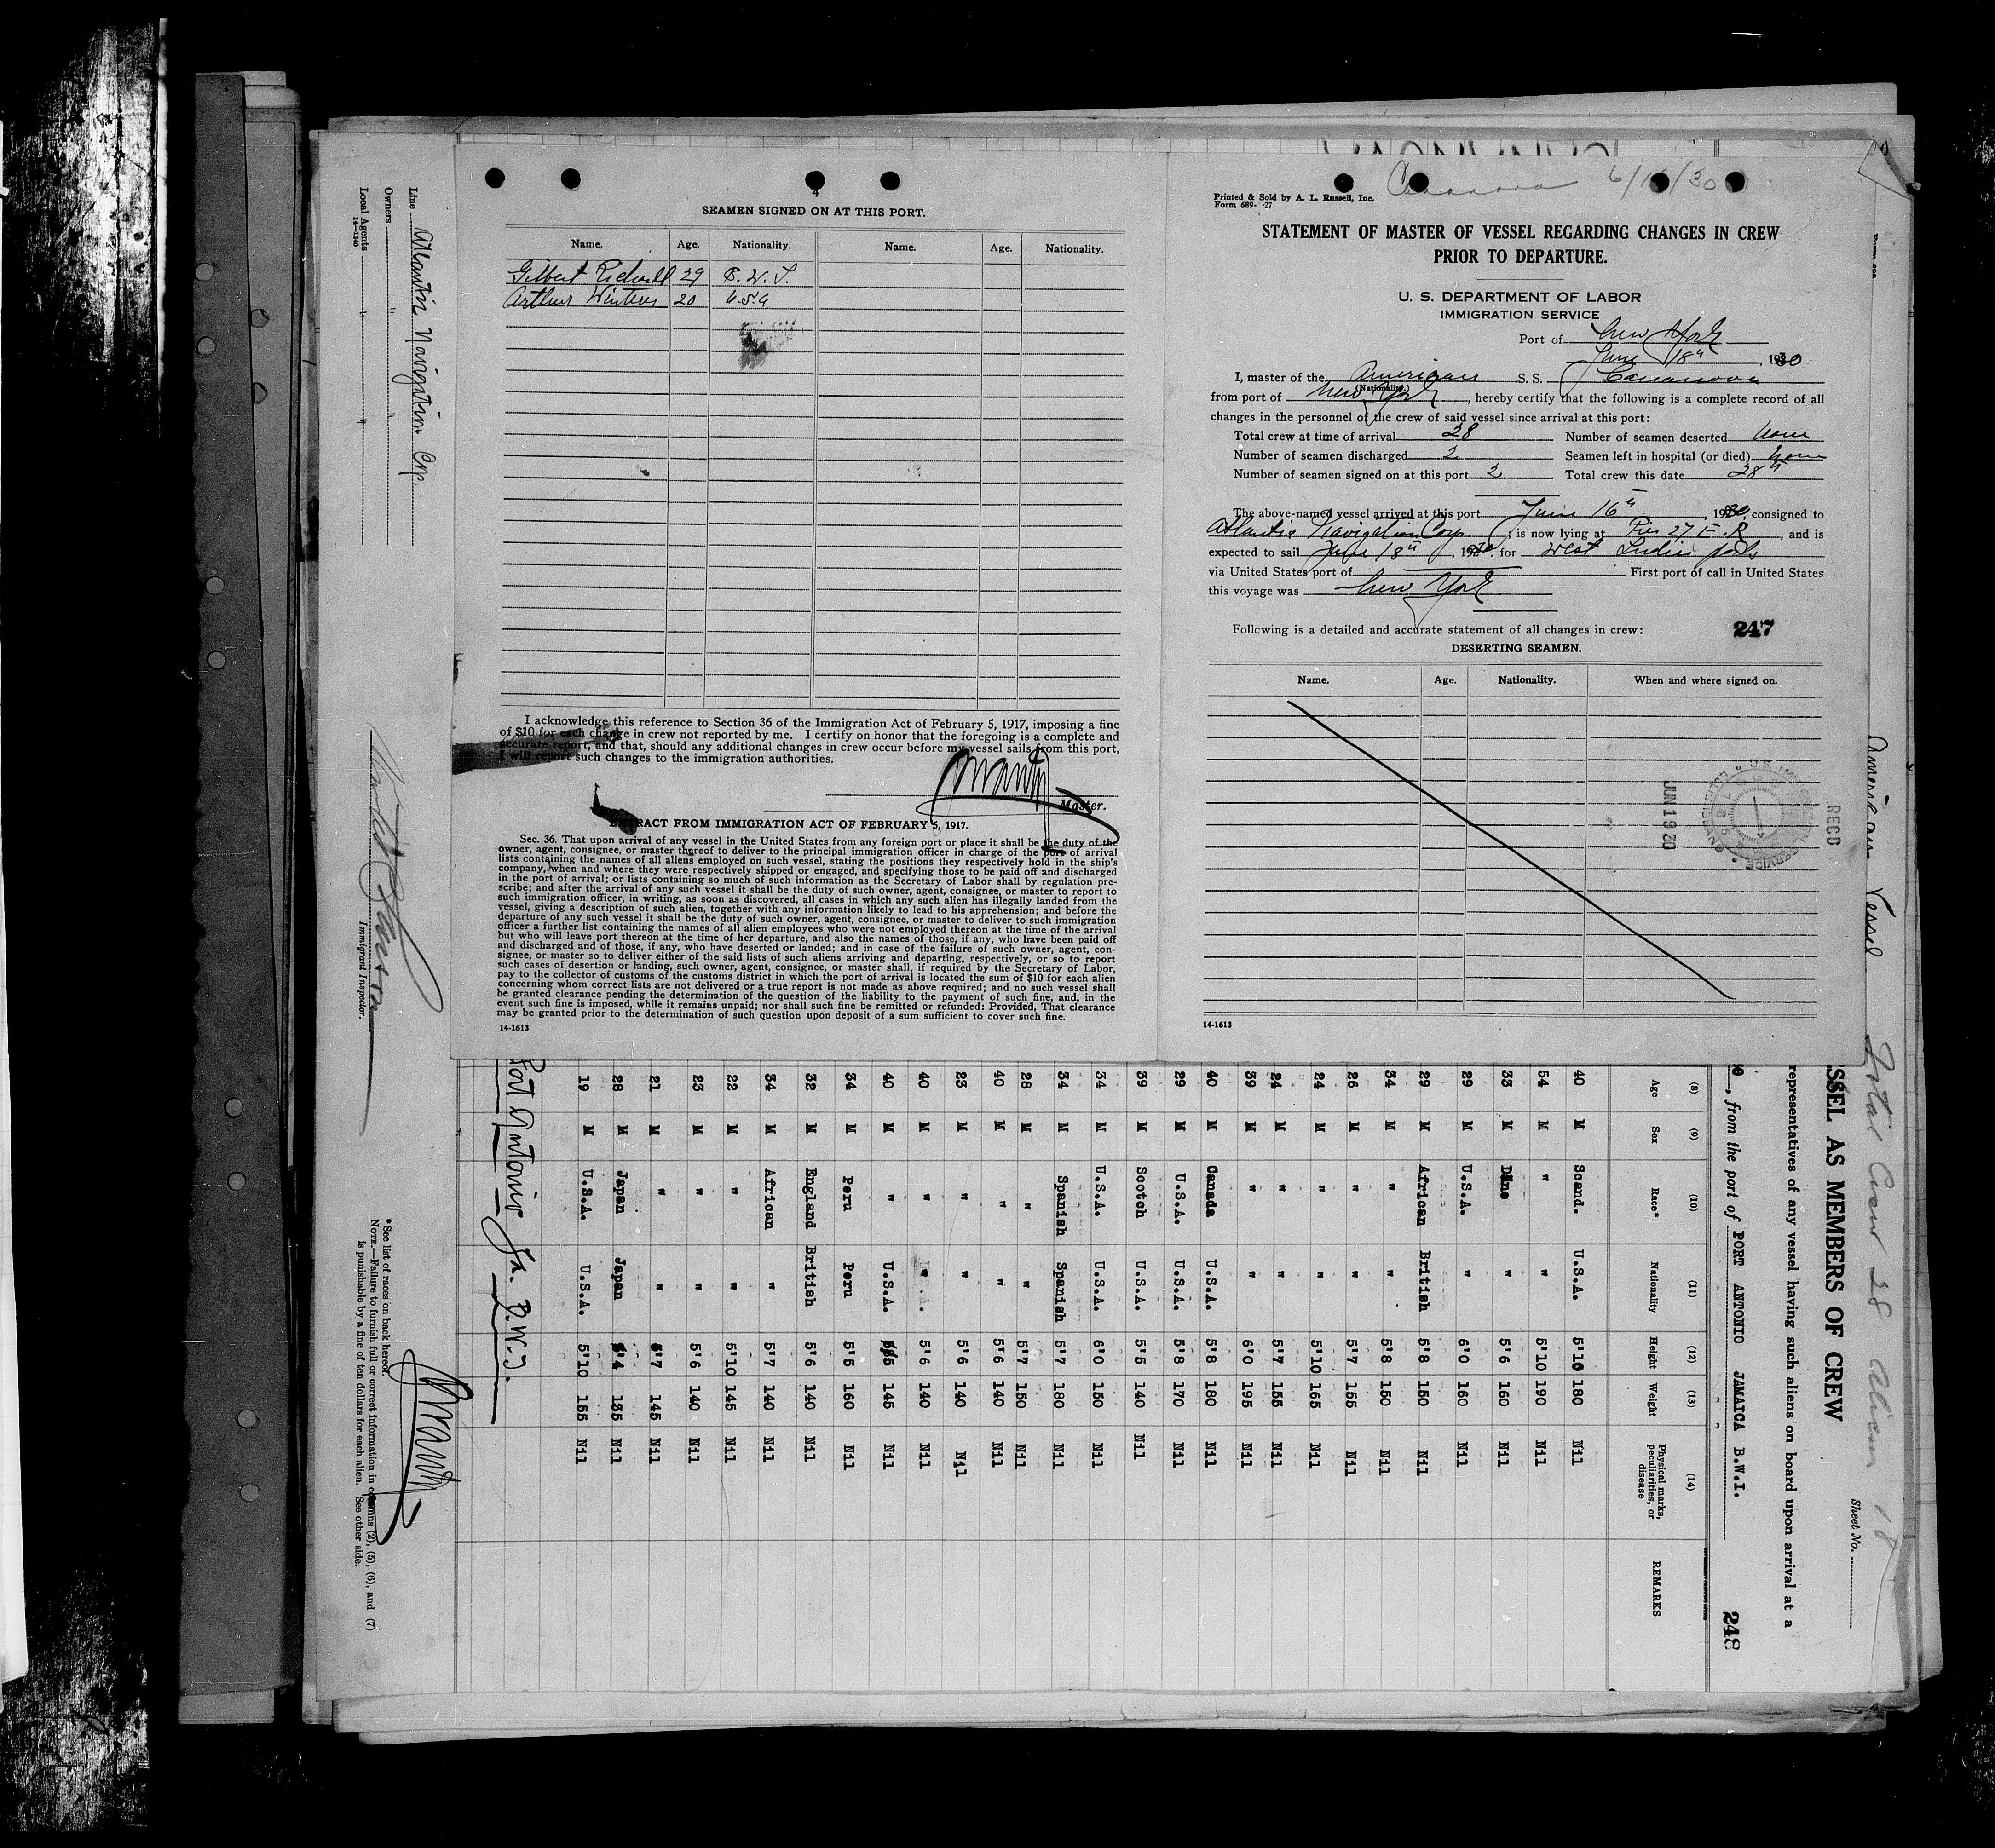 4
SEAMEN SIGNED ON AT THIS PORT.
Name. Age. Nationality. Name. Age. Nationality.
Gilbert 29 B. W. I.
Arthur Winters 20 U.S.A
I acknowledge this reference to Section 36 of the Immigration Act of February 5, 1917, imposing a fine
of $10 for each change in crew not reported by me. I certify on honor that the foregoing is a complete and
accurate report, and that, should any additional changes in crew occur before my vessel sails from this port,
I will report such changes to the immigration authorities.
Master.
EXTRACT FROM IMMIGRATION ACT OF FEBRUARY 5, 1917.
Sec. 36. That upon arrival of any vessel in the United States from any foreign port or place it shall be the duty of the
owner, agent, consignee, or master thereof to deliver to the principal immigration officer in charge of the port of arrival
lists containing the names of all aliens employed on such vessel, stating the positions they respectively hold in the ship's
company, when and where they were respectively shipped or engaged, and specifying those to be paid off and discharged
in the port of arrival; or lists containing so much of such information as the Secretary of Labor shall by regulation pre-
scribe; and after the arrival of any such vessel it shall be the duty of such owner, agent, consignee, or master to report to
such immigration officer, in writing, as soon as discovered, all cases in which any such alien has illegally landed from the
vessel, giving a description of such alien, together with any information likely to lead to his apprehension; and before the
departure of any such vessel it shall be the duty of such owner, agent, consignee, or master to deliver to such immigration
officer a further list containing the names of all alien employees who were not employed thereon at the time of the arrival
but who will leave port thereon at the time of her departure, and also the names of those, if any, who have been paid off
and discharged and of those, if any, who have deserted or landed; and in case of the failure of such owner, agent, con-
signee, or master so to deliver either of the said lists of such aliens arriving and departing, respectively, or so to report
such cases of desertion or landing, such owner, agent, consignee, or master shall, if required by the Secretary of Labor,
pay to the collector of customs of the customs district in which the port of arrival is located the sum of $10 for each alien
concerning whom correct lists are not delivered or a true report is not made as above required; and no such vessel shall
be granted clearance pending the determination of the question of the liability to the payment of such fine, and, in the
event such fine is imposed, while it remains unpaid; nor shall such fine be remitted or refunded: Provided, That clearance
may be granted prior to the determination of such question upon deposit of a sum sufficient to cover such fine.
14-1613
Casanova 6/16/30
Printed & Sold by A. L. Russell, Inc.
Form 689- -27
STATEMENT OF MASTER OF VESSEL REGARDING CHANGES IN CREW
PRIOR TO DEPARTURE.
U. S. DEPARTMENT OF LABOR
IMMIGRATION SERVICE
Port of New York
June 18th, 1930
I, master of the American S. S. Casanova
(Nationality.)
from port of New York, hereby certify that the following is a complete record of all
changes in the personnel of the crew of said vessel since arrival at this port:
Total crew at time of arrival 28 Number of seamen deserted None
Number of seamen discharged 2 Seamen left in hospital (or died) None
Number of seamen signed on at this port 2 Total crew this date 28
The above-named vessel arrived at this port June 16th, 1930, consigned to
Atlantic Navigation Corp, is now lying at Pier 27 E. R, and is
expected to sail June 18th, 1930 for West Indies ports
via United States port of First port of call in United States
this voyage was New York
Following is a detailed and accurate statement of all changes in crew: 247
DESERTING SEAMEN.
Name. Age. Nationality. When and where signed on.
REC'D
JUN 19 30
14-1613
American Vessel Total Crew 28 Aliens 18
Sheet No.
SSEL AS MEMBERS OF CREW
representatives of any vessel having such aliens on board upon arrival at a
, from the port of PORT ANTONIO JAMAICA B.W.I. 248
(8) (9) (10) (11) (12) (13) (14)
Age Sex Race* Nationality Height Weight Physical marks, peculiarities, or disease REMARKS
40 M Scand. U.S.A. 5'10 180 Nil
54 M " " 5'10 190 Nil
33 M Dane " 5'6 160 Nil
29 M U.S.A. " 6'0 160 Nil
29 M African British 5'8 150 Nil
34 M " " 5'8 150 Nil
26 M " " 5'7 155 Nil
24 M " " 5'10 165 Nil
24 M " " 5'7 155 Nil
39 M " " 6'0 195 Nil
40 M Canada U.S.A. 5'8 180 Nil
29 M U.S.A. U.S.A. 5'8 170 Nil
39 M Scotch U.S.A. 5'5 140 Nil
34 M U.S.A. U.S.A. 6'0 150 Nil
34 M Spanish Spanish 5'7 180 Nil
28 M " " 5'7 150 Nil
40 M " " 5'6 140 Nil
23 M " " 5'6 140 Nil
40 M " " 5'6 140 Nil
40 M " U.S.A. 5'5 145 Nil
34 M Peru Peru 5'5 160 Nil
32 M England British 5'6 140 Nil
34 M African " 5'7 140 Nil
22 M " " 5'10 145 Nil
23 M " " 5'6 140 Nil
21 M " " 5'7 145 Nil
28 M Japan Japan 5'4 135 Nil
19 M U.S.A. U.S.A. 5'10 155 Nil
Port Antonio Ja. B.W.I.
Line Atlantic Navigation Crp.
Owners " "
Local Agents " "
14-1240
Immigrant Inspector.
*See list of races on back hereof.
NOTE.—Failure to furnish full or correct information in columns (2), (5), (6), and (7)
is punishable by a fine of ten dollars for each alien. See other side.